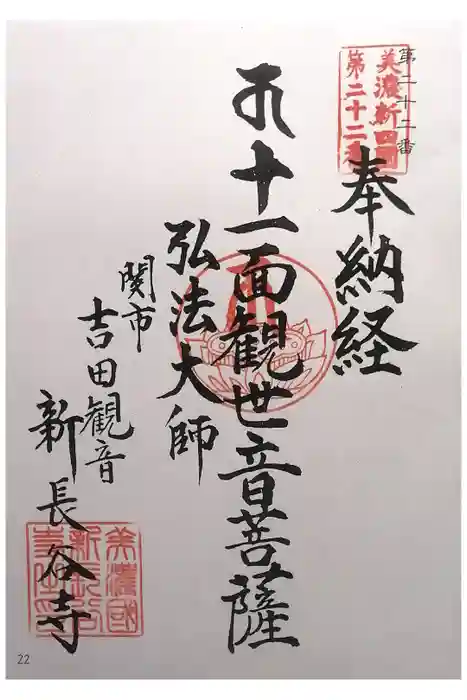 第二十二番
美濃新四国
第二十二番
奉納経
十一面観世音菩薩
弘法大師
関市
吉田観音
新長谷寺
美濃國
新長谷
寺
22